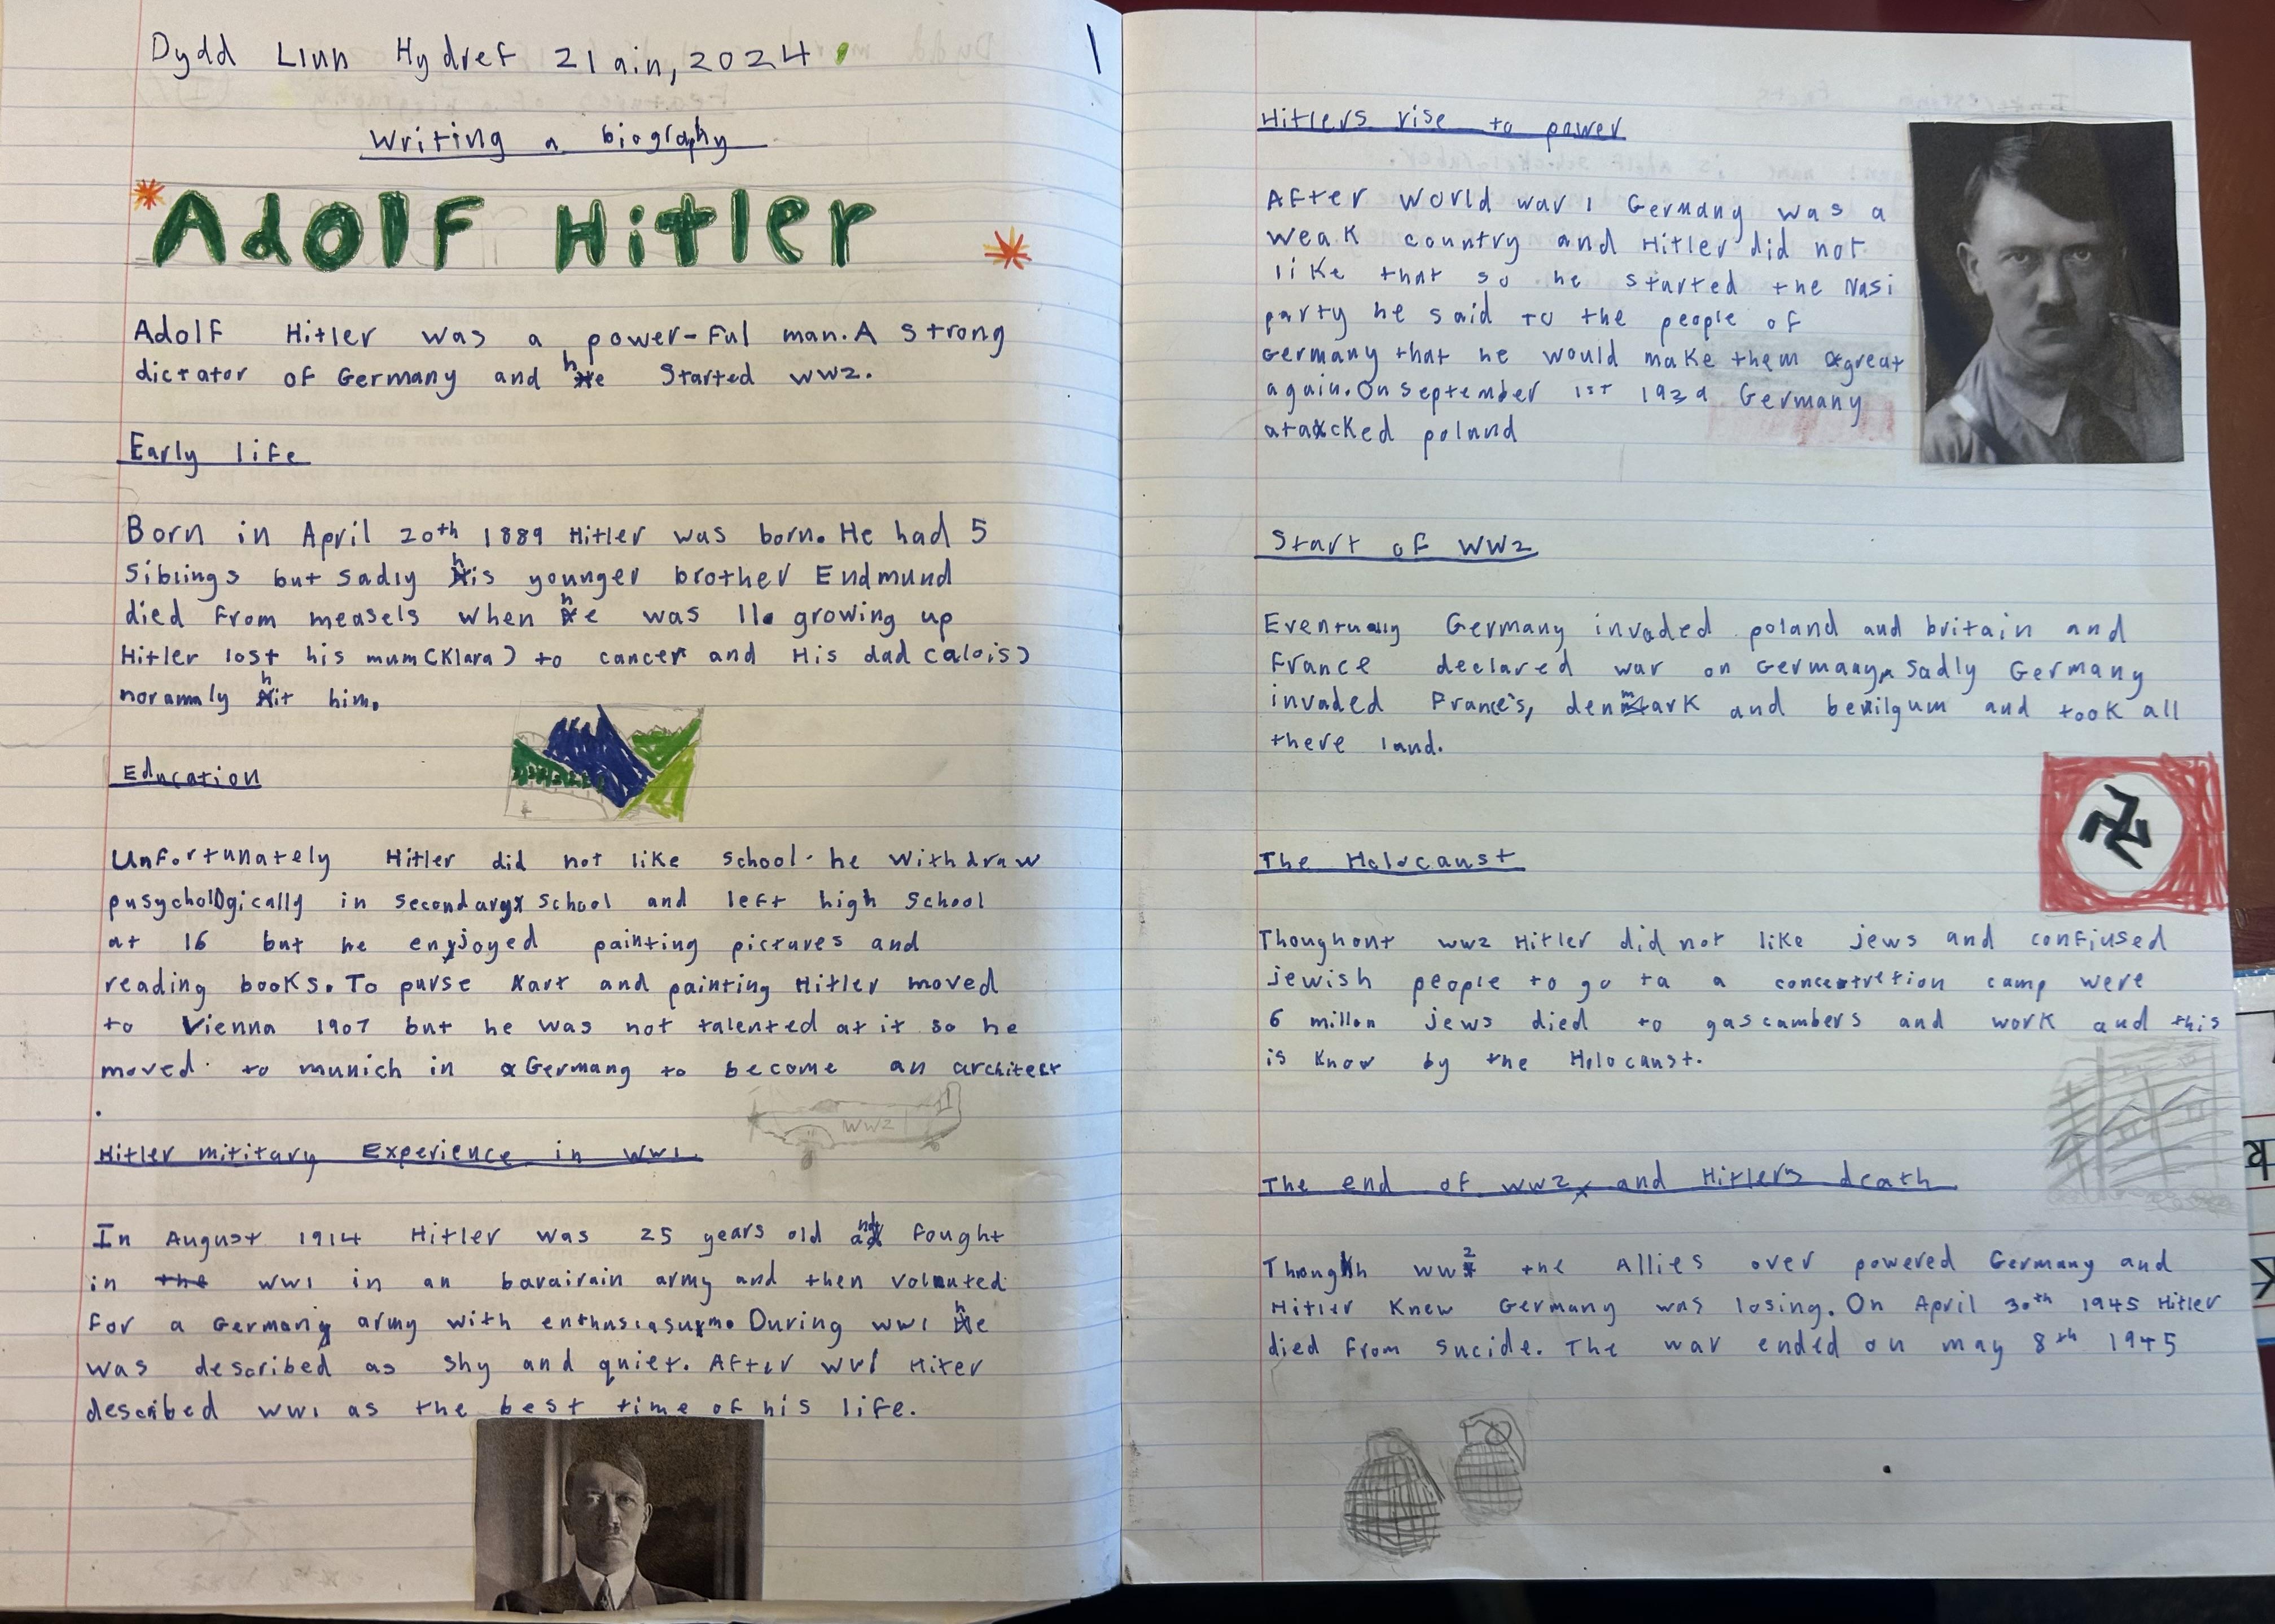 Dydd Llun Hydref 21ain, 2024
Writing a biography
Adolf Hitler
Adolf Hitler was a power-ful man. A strong
dictator of Germany and he started ww2.
Early life
Born in April 20th 1889 Hitler was born. He had 5
siblings but sadly his younger brother Endmund
died from measels when he was 11. growing up
Hitler lost his mum (Klara) to cancer and His dad (alois)
noramaly hit him.
Education
Unfortunately Hitler did not like school. he withdraw
pusychologically in secondary school and left high school
at 16 but he enjoyed painting pictures and
reading books. To purse art and painting Hitler moved
to Vienna 1907 but he was not talented at it so he
moved to munich in Germang to become an architect
.
WW2
Hitler mititary Experience in ww1
In August 1914 Hitler was 25 years old and fought
in ww1 in an bavairain army and then volunted
for a German army with During ww1 he
was described as shy and quiet. After ww1 Hiter
described ww1 as the best time of his life.
1
Hitlers rise to power
After World war 1 Germany was a
weak country and Hitler did not
like that so he started the Nasi
party he said to the people of
Germany that he would make them great
again. On september 1st 1939 Germany
atacked poland
Start of WW2
Eventually Germany invaded poland and britain and
France declared war on Germany, sadly Germany
invaded France's, denmark and beilgum and took all
there land.
The Holocaust
Thoughout ww2 Hitler did not like jews and confiused
jewish people to go to a camp were
6 millon jews died to gas cambers and work and this
is know by the Holocaust.
The end of ww2 and Hitlers death
Though ww2 the Allies over powered Germany and
Hitler knew Germany was losing. On April 30th 1945 Hitler
died from sucide. The war ended on may 8th 1945